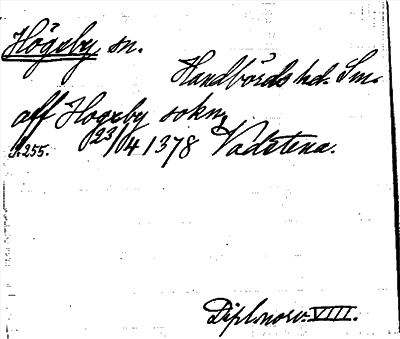 Högsby sn.
Handbörds hd. Sm.
aff Hogxby sokn
s.255. 23/4 1378 Vadstena.
Dipl. norv. VIII.